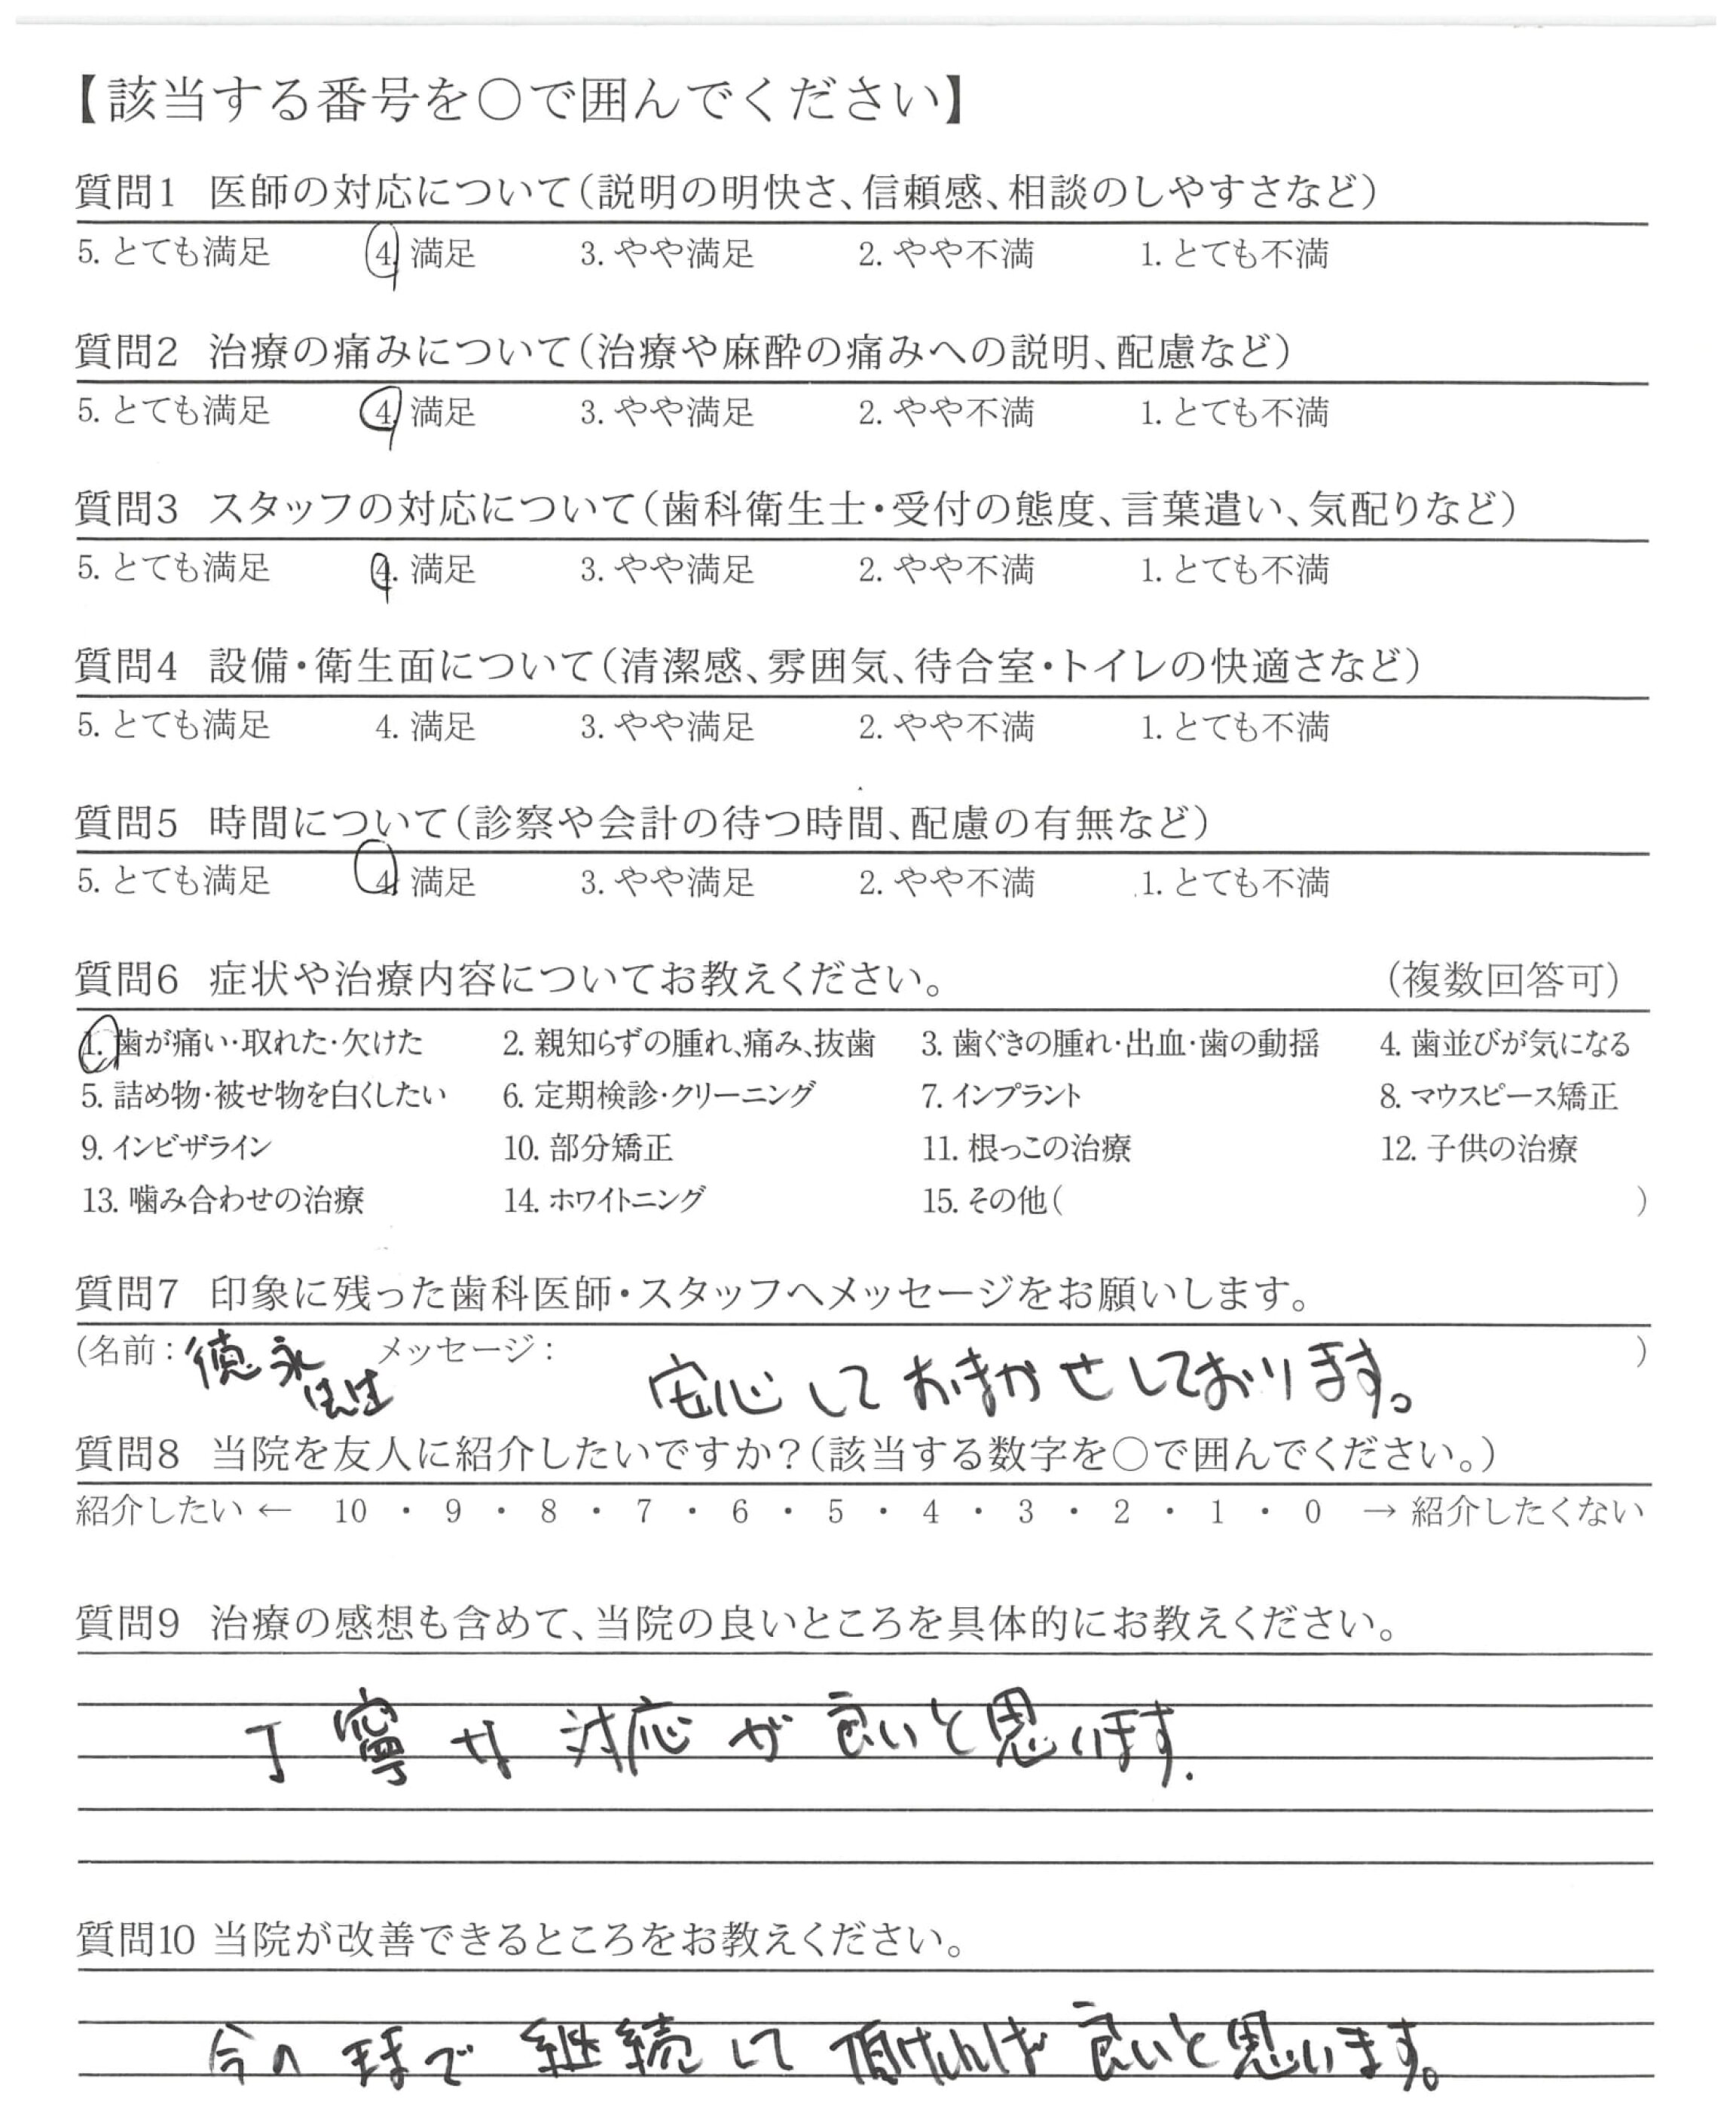 【該当する番号を○で囲んでください】
質問1 医師の対応について(説明の明快さ、信頼感、相談のしやすさなど)
5. とても満足 4. 満足 3. やや満足 2. やや不満 1. とても不満
質問2 治療の痛みについて(治療や麻酔の痛みへの説明、配慮など)
5. とても満足 4. 満足 3. やや満足 2. やや不満 1. とても不満
質問3 スタッフの対応について(歯科衛生士・受付の態度、言葉遣い、気配りなど)
5. とても満足 4. 満足 3. やや満足 2. やや不満 1. とても不満
質問4 設備・衛生面について(清潔感、雰囲気、待合室・トイレの快適さなど)
5. とても満足 4. 満足 3. やや満足 2. やや不満 1. とても不満
質問5 時間について(診察や会計の待つ時間、配慮の有無など)
5. とても満足 4. 満足 3. やや満足 2. やや不満 1. とても不満
質問6 症状や治療内容についてお教えください。 (複数回答可)
1. 歯が痛い・取れた・欠けた 2. 親知らずの腫れ、痛み、抜歯 3. 歯ぐきの腫れ・出血・歯の動揺 4. 歯並びが気になる
5. 詰め物・被せ物を白くしたい 6. 定期検診・クリーニング 7. インプラント 8. マウスピース矯正
9. インビザライン 10. 部分矯正 11. 根っこの治療 12. 子供の治療
13. 噛み合わせの治療 14. ホワイトニング 15. その他( )
質問7 印象に残った歯科医師・スタッフへメッセージをお願いします。
(名前:徳永せんせ メッセージ: 安心しておまかせしております。 )
質問8 当院を友人に紹介したいですか?(該当する数字を○で囲んでください。)
紹介したい ← 10 ・ 9 ・ 8 ・ 7 ・ 6 ・ 5 ・ 4 ・ 3 ・ 2 ・ 1 ・ 0 → 紹介したくない
質問9 治療の感想も含めて、当院の良いところを具体的にお教えください。
丁寧な対応が良いと思います.
質問10 当院が改善できるところをお教えください。
今のままで継続して頂ければ良いと思います。